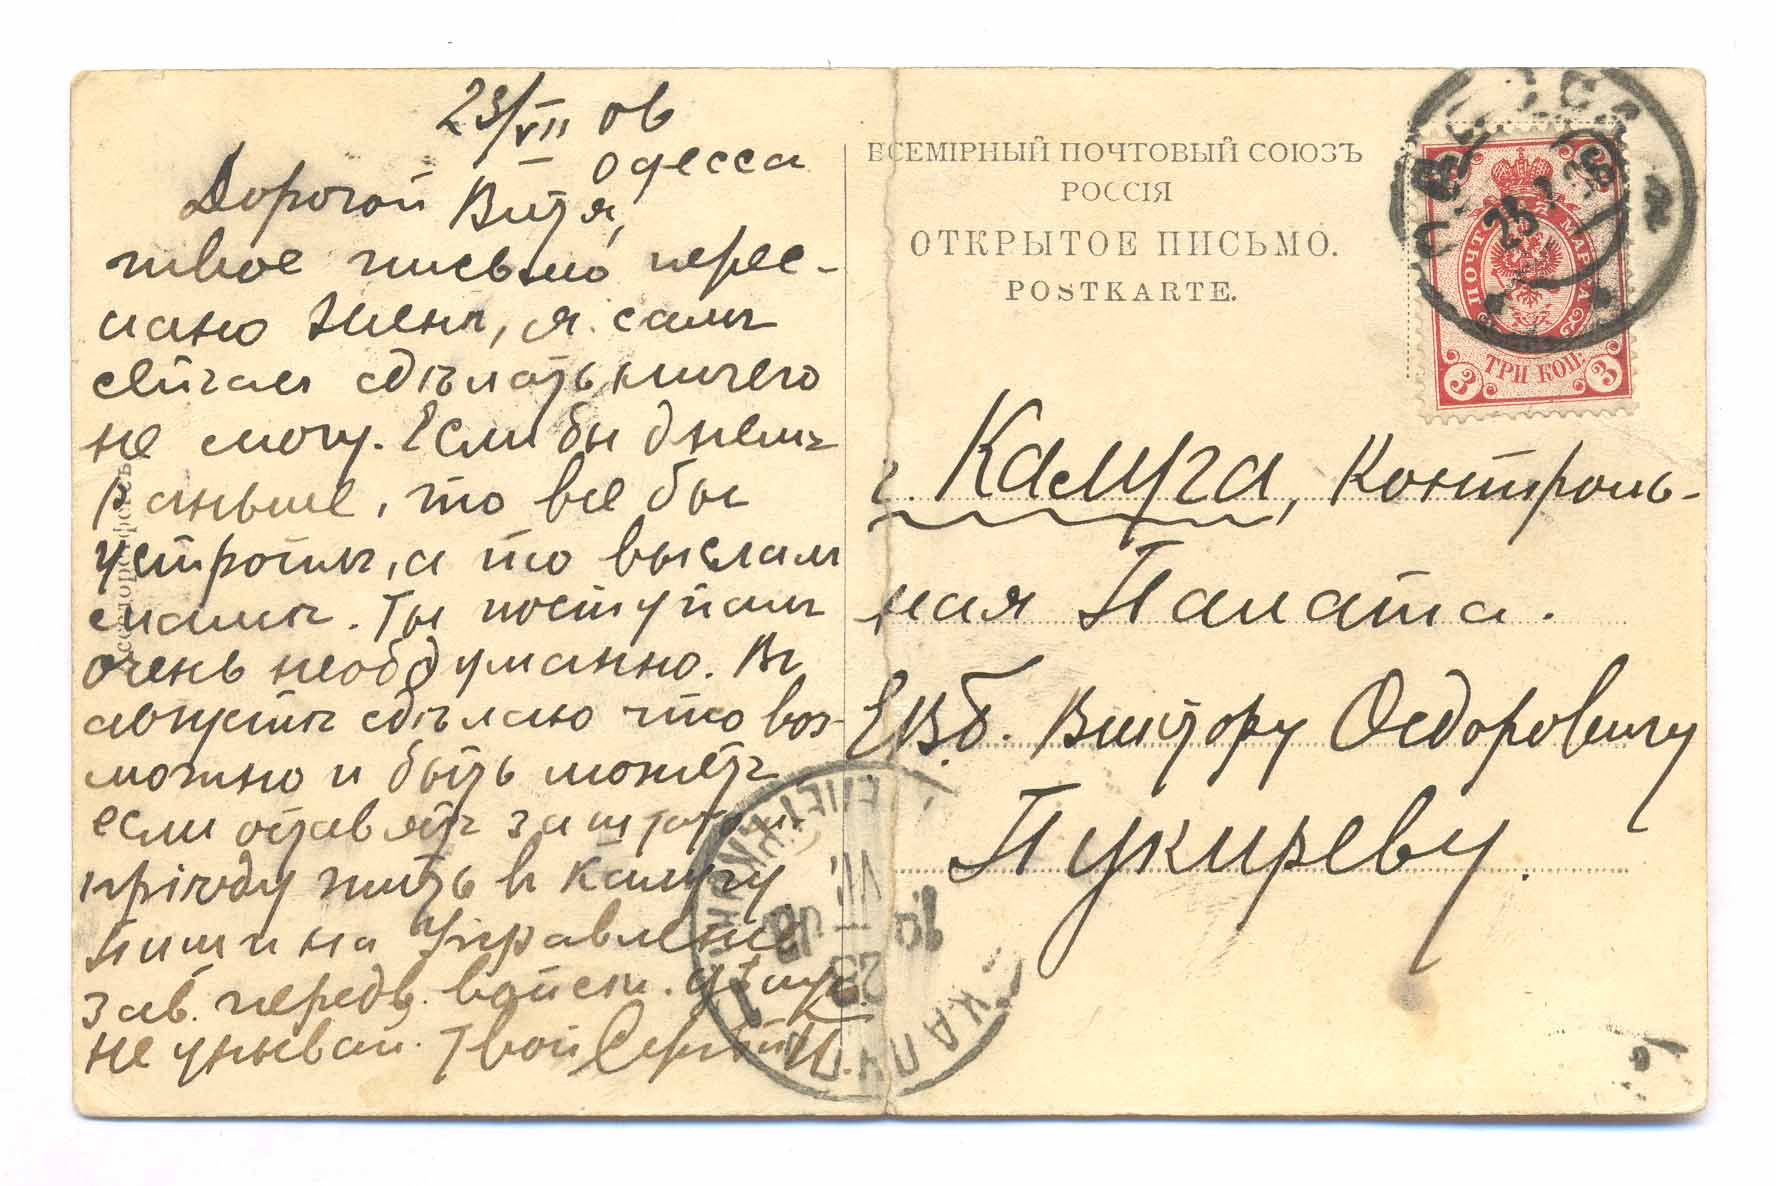 23/VII 06
Одесса
Дорогой Витя,
твое письмо перес-
лано мнѣ, я самъ
сейчас сдѣлать ничего
не могу. Если бы днемъ
раньше, то все бы
устроилъ, а то выслал
мамѣ. Ты поступаешь
очень необдуманно. Въ
августѣ сдѣлаю что воз-
можно и быть можетъ
если оставятъ за штатом
пріѣду жить в Калугу
Пиши на Управленіе
зав. передв. войск.
не унывай. Твой Сергѣй П.
ВСЕМІРНЫЙ ПОЧТОВЫЙ СОЮЗЪ
РОССІЯ
ОТКРЫТОЕ ПИСЬМО.
POSTKARTE.
ПОЧТОВАЯ МАРКА
3 ТРИ КОП. 3
г. Калуга, Контроль-
ная Палата.
ЕВБ. Виктору Федоровичу
Пукиреву.